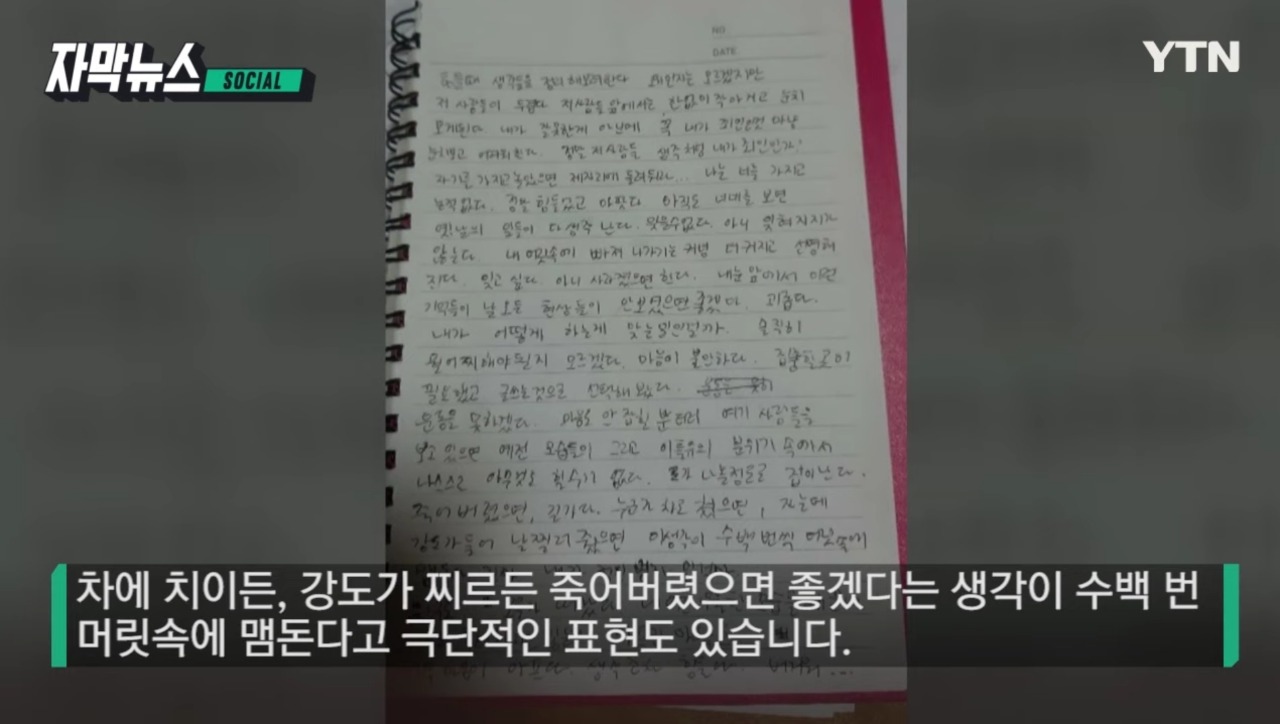 자막뉴스
SOCIAL
YTN
NO
DATE
생각들을 정리해보려한다 왜인지는 모르겠지만
저 사람들이 두렵다 저사람들 앞에서는 한없이 작아지고 눈치
보게된다. 내가 잘못한게 아닌데 꼭 내가 죄인인것 마냥
눈치보고 정말 저사람들 생각처럼 내가 죄인인가?
자기를 가지고 놀았으면 제자리에 돌려놔라... 나는 너를 가지고
논적없다. 정말 힘들었고 아팠다. 아직도 너네를 보면
옛날의 일들이 다 생각 난다. 잊을수없다. 아니 잊혀지지가
않는다 내 머릿속에 빠져 나가기는커녕 더 커지고 선명해
진다. 잊고 싶다. 아니 사라졌으면 한다. 내눈앞에서 이런
기억들이 떠오른 현상들이 안보였으면 좋겠다. 괴롭다.
내가 어떻게 하는게 맞는일인걸까. 솔직히
뭘 어찌해야될지 모르겠다. 마음이 불안하다. 집중할곳이
필요했고 글쓰는것으로 선택해봤다.
운동을 못하겠다. 여기 사람들을
보고 있으면 예전 모습들이 그리고 이특유의 분위기 속에서
나스스로 아무것도 할수가 없다. 눈물나올정도로 겁이난다.
죽어버렸으면, 누군가 차로 쳤으면, 자는데
강도가들어 날찔러 줬으면 이생각이 수백번씩 머릿속에
차에 치이든, 강도가 찌르든 죽어버렸으면 좋겠다는 생각이 수백 번
머릿속에 맴돈다고 극단적인 표현도 있습니다.